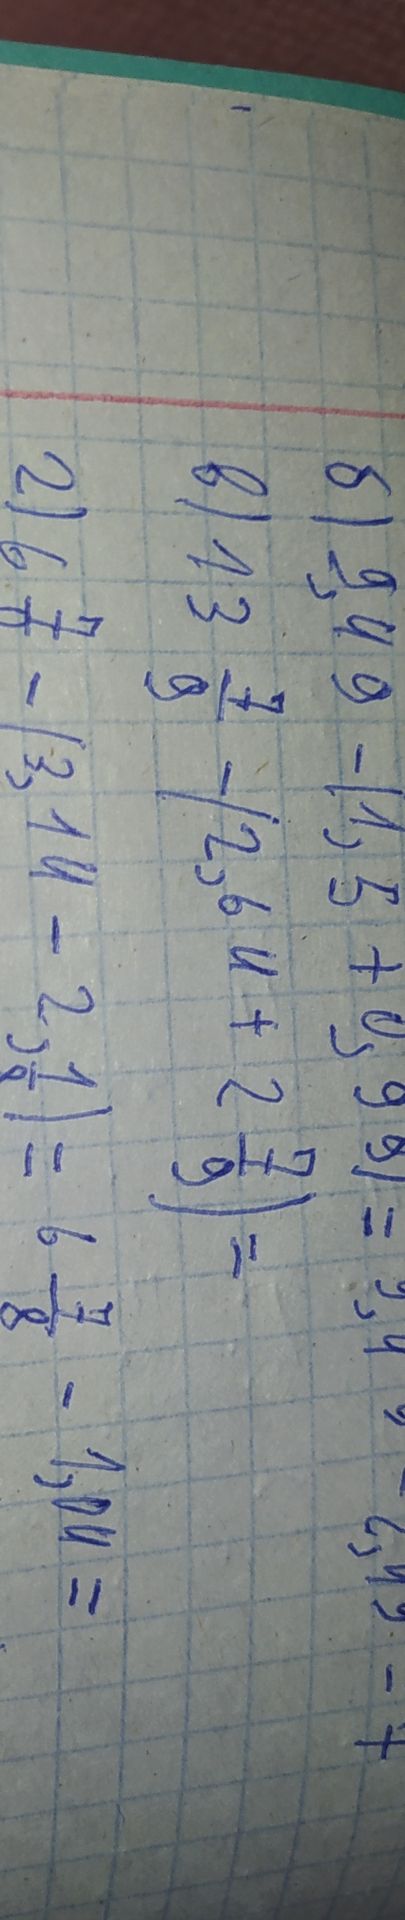 б) 9,49 - (1,5 + 0,99) = 9,49 - 2,49 = 7
в) 13 7/9 - (2,64 + 2 7/9) =
г) 6 7/8 - (3,14 - 2,1/8) = 6 7/8 - 1,04 =